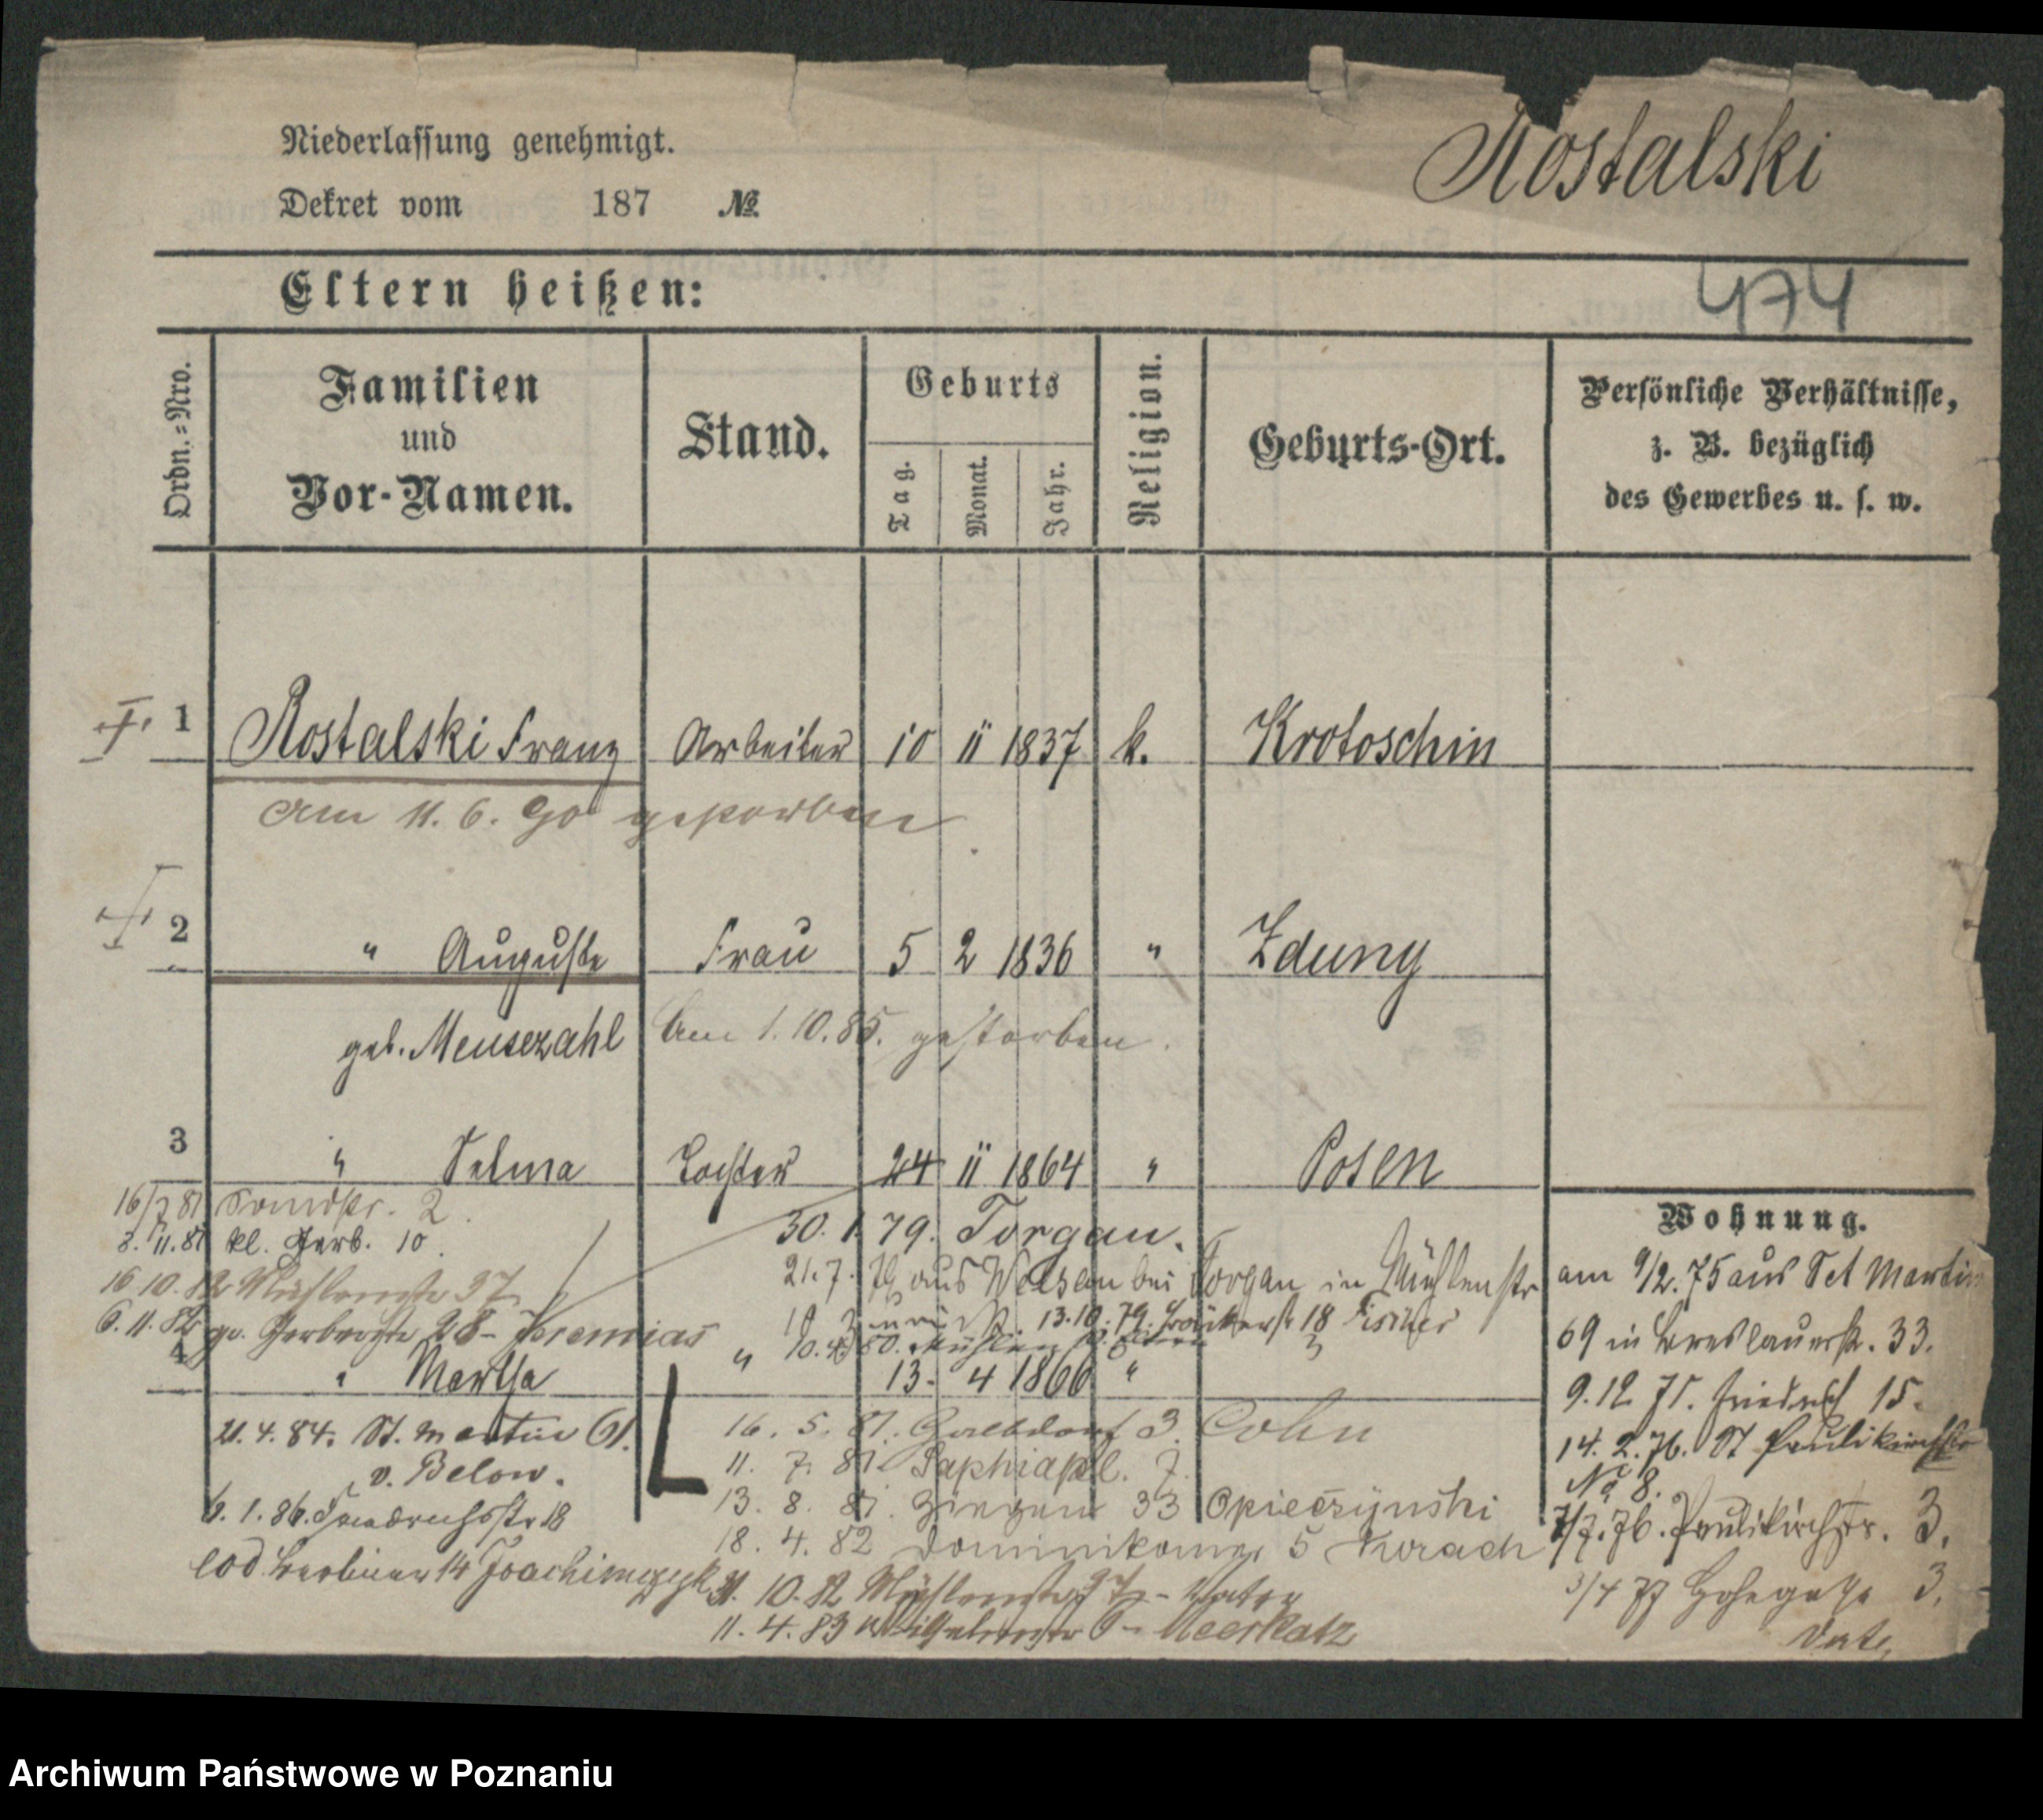 Niederlassung genehmigt.
Dekret vom 187 №
Rostalski
474
Eltern heißen:
Ordn.-Nro.
Familien
und
Vor-Namen.
Stand.
Geburts
Tag.
Monat.
Jahr.
Religion.
Geburts-Ort.
Persönliche Verhältnisse,
z. B. bezüglich
des Gewerbes u. s. w.
1 Rostalski Franz Arbeiter 10 11 1837 k. Krotoschin
Am 11. 6. 90 gestorben
2 " Auguste Frau 5 2 1836 " Zduny
geb. Meusezahl Am 1. 10. 85. gestorben.
3 " Selma Tochter 24 11 1864 " Posen
16/7 81 Sandstr. 2.
30. 1. 79. Torgau.
3. 11. 81 kl. Gerb. 10.
21. 7. 79 aus Welsau bei Torgau in Mühlenstr
16 10. 82 Mühlenstr 37
13. 10. 79. 18 Fischer
6. 11. 82 gr. Gerberstr 28 - Jeremias
4 " Martha " 13. 4 1866 "
21. 4. 84. St. Martin 61.
v. Below.
6. 1. 86. Friedrichsstr 18
Berliner 14
16. 5. 81. 3. Cohn
11. 7. 81. Saphiapl. 7.
13. 8. 81. Ziegen 33 Opieczynski
18. 4. 82 Dominikaner 5
10. 82 Mühlenstr 37 - Vater
11. 4. 83 6 - Meerkatz
Wohnung.
am 9/2. 75 aus Sct Martin
69 in Breslauerstr. 33.
9. 12. 75. Friedrich 15.
14. 2. 76. St Paulikirchstr
No 8.
7/7. 76. Paulikirchstr. 3.
3/4 77 Hohegasse 3.
Archiwum Państwowe w Poznaniu